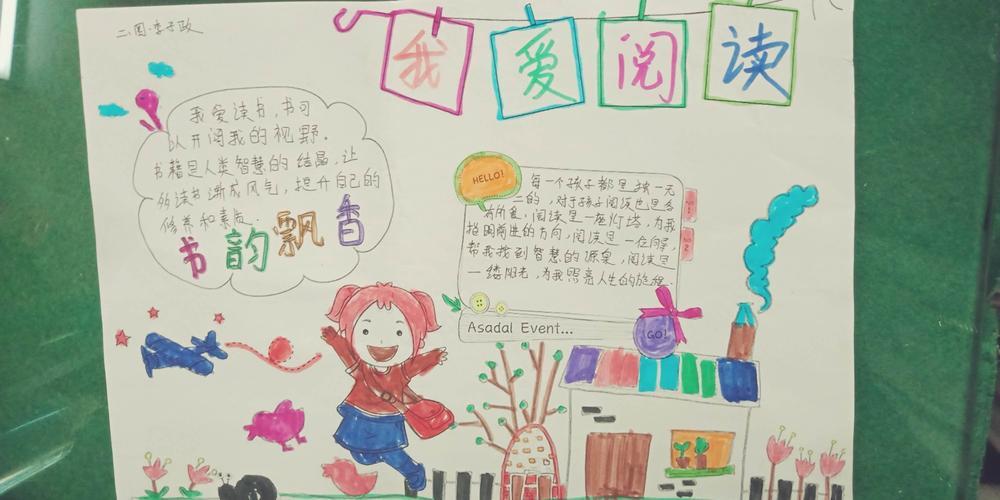 二.四.李子政
我 爱 阅 读
我爱读书,书可
以开阔我的视野。
书籍是人类智慧的结晶,让
读书渐成风气,提升自己的
修养和素质.
书韵飘香
HELLO!
每一个孩子都是独一无
二的,对于孩子阅读也是各
有所爱,阅读是一座灯塔,为我
指明前进的方向,阅读是一位向导,
帮我找到智慧的源泉,阅读是
一缕阳光,为我照亮人生的旅程.
NO.1
NO.2
Asadal Event...
GO!